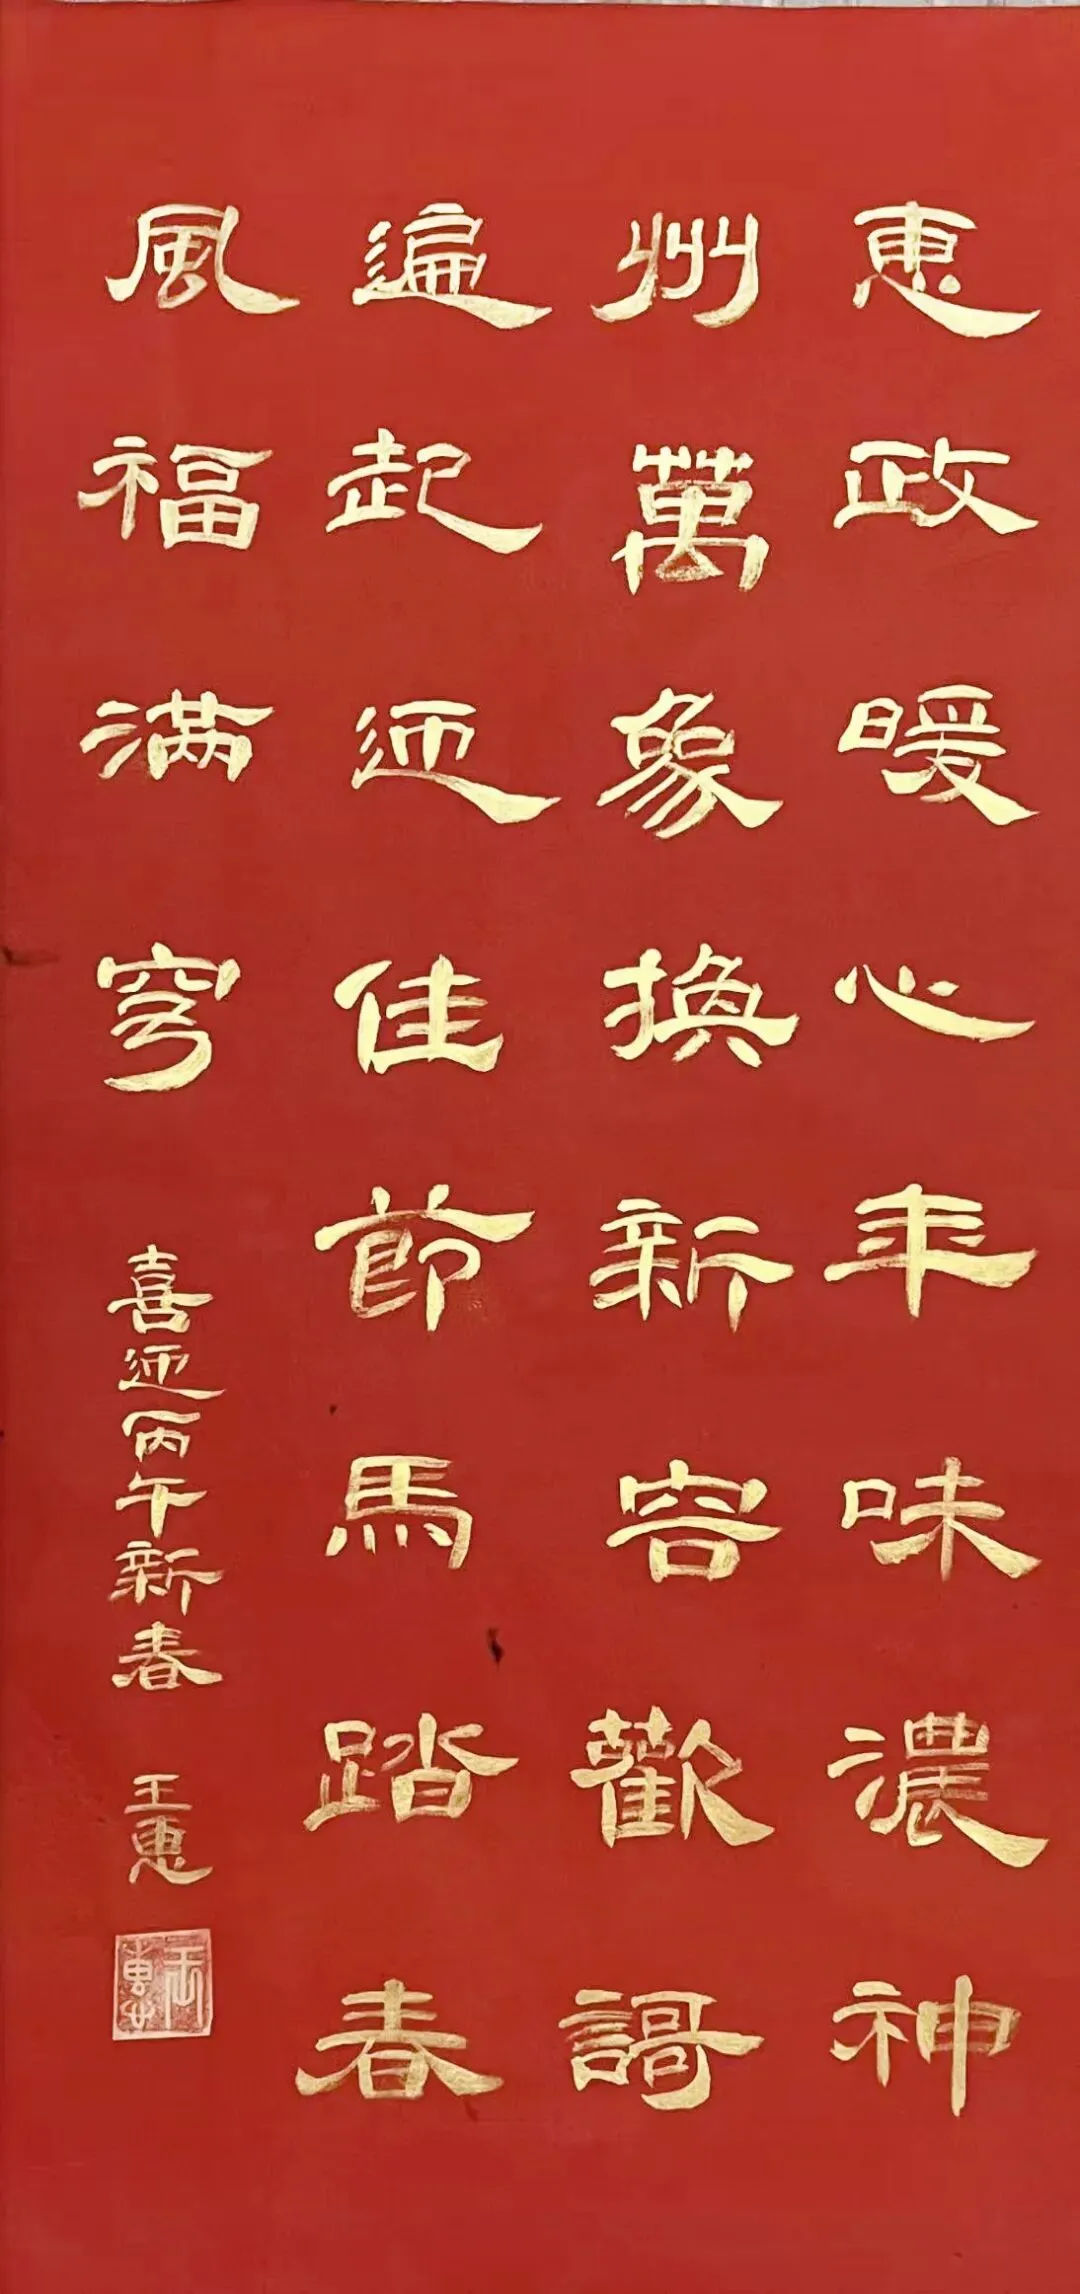 惠政暖心年味濃神
州萬象換新容歡謌
遍起迎佳節馬踏春
風福满穹
喜迎丙午新春 王惠
王惠